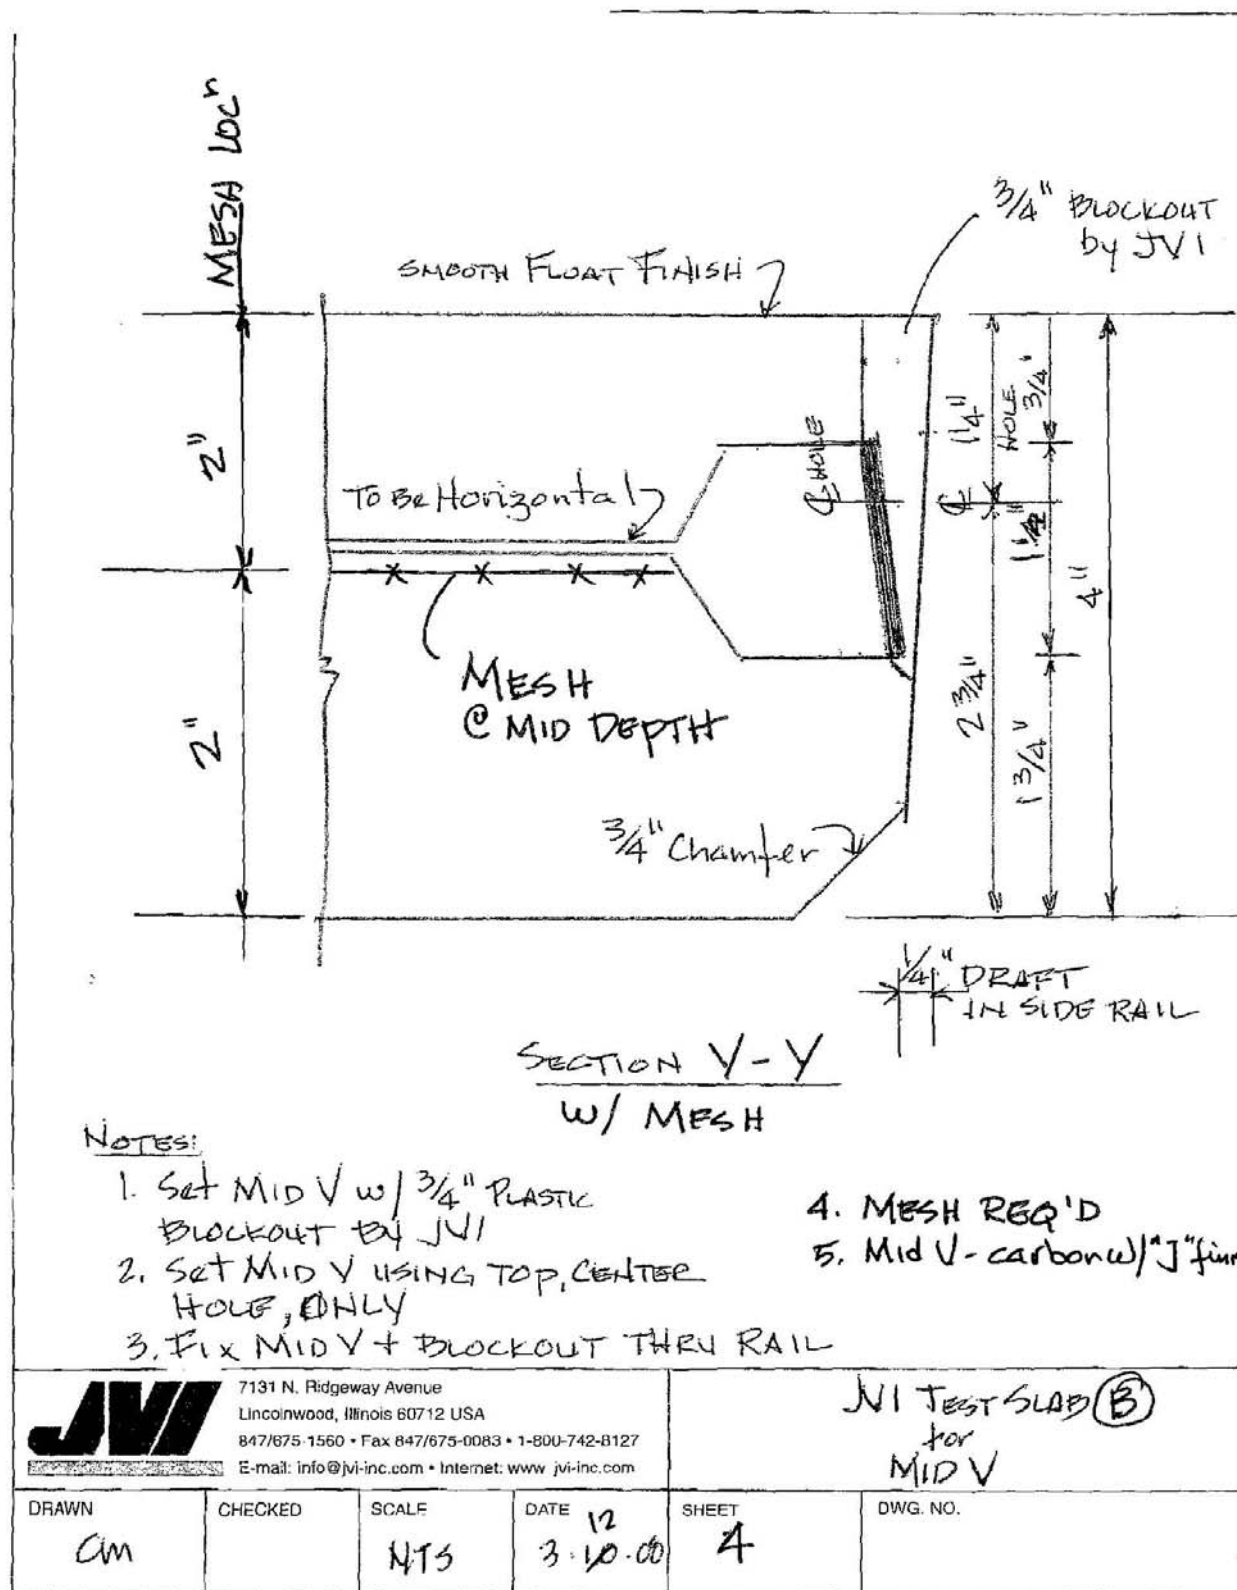 MESH LOCⁿ
3/4" BLOCKOUT
by JVI
SMOOTH FLOAT FINISH
2"
To Be Horizontal
℄ HOLE
℄
1 1/4"
HOLE
3/4"
1 1/4"
4"
MESH
@ MID DEPTH
2"
2 3/4"
1 3/4"
3/4" Chamfer
1/4" DRAFT
IN SIDE RAIL
SECTION Y-Y
W/ MESH
NOTES:
1. Set MID V w/ 3/4" PLASTIC
BLOCKOUT BY JVI
2. Set MID V USING TOP, CENTER
HOLE, ONLY
3. FIX MID V + BLOCKOUT THRU RAIL
4. MESH REQ'D
5. Mid V - carbon w/ "J"
JVI
7131 N. Ridgeway Avenue
Lincolnwood, Illinois 60712 USA
847/675-1560 • Fax 847/675-0083 • 1-800-742-8127
E-mail: info@jvi-inc.com • Internet: www jvi-inc.com
JVI TEST SLAB B
for
MID V
DRAWN
CM
CHECKED
SCALE
NTS
DATE
12
3.10.00
SHEET
4
DWG. NO.